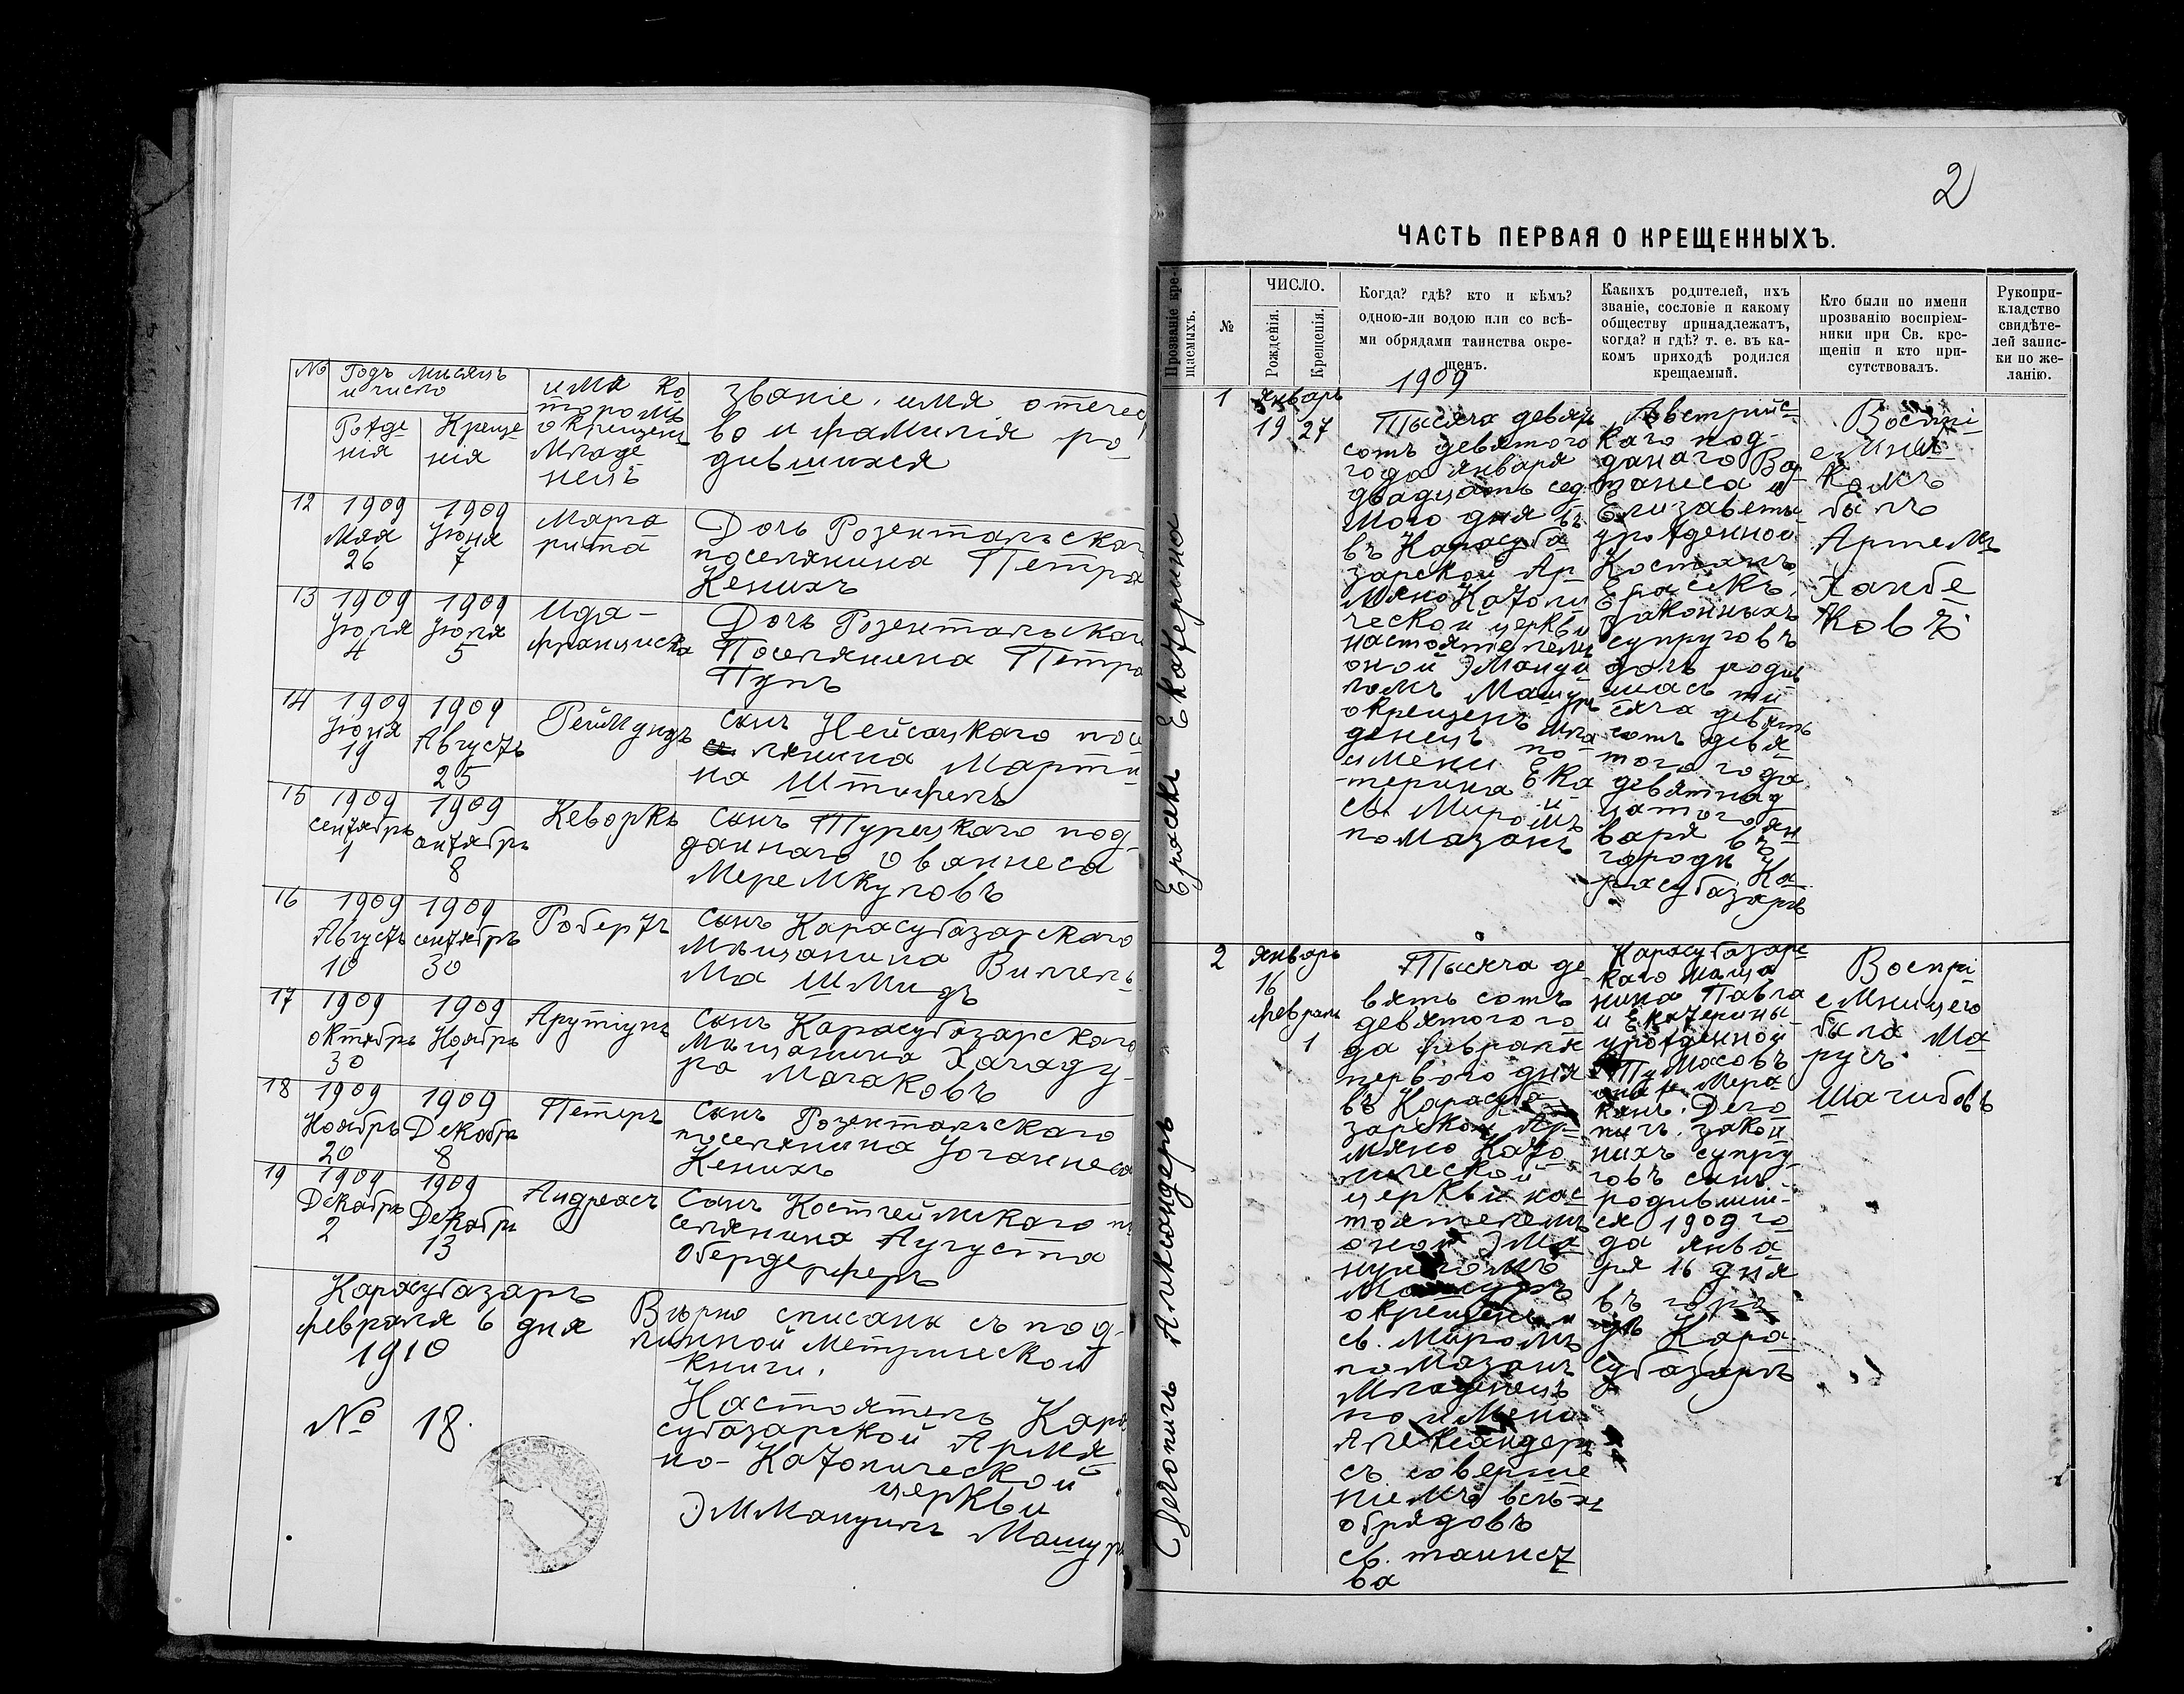 №
Годъ мисяцъ
и число
Рожде
нія
Креще
нія
имя ко
торомъ
окрещенъ
младе
нецъ
Званіе, имя отечес
во и фамилія ро
дившихся
12
1909
Мая
26
1909
Іюня
7
Марга
рита
Дочь Розентальскаг
поселянина Петра
Кенихъ
13
1909
Іюля
4
1909
Іюля
5
Ида-
франциска
Дочь Розентальскаг
Поселянина Петра
Пулъ
14
1909
Іюня
19
1909
Августъ
25
Реймундъ
сынъ Нейсацкаго посе
лянина Марти
на Штифель
15
1909
сентябрь
1
1909
октябрь
8
Кеворкъ
Сынъ Турецкаго под-
даннаго Ованнеса
Меремкуловъ
16
1909
Августъ
10
1909
сентябрь
30
Робертъ
Сынъ Карасубазарскаго
мъщанина Вильгель
ма Шмидъ
17
1909
октябрь
30
1909
Ноябрь
1
Арутіунъ
Сынъ Карасубазарскаго
мъщанина Хачаду-
ра Малаковъ
18
1909
Ноябрь
20
1909
Декабрь
8
Петеръ
Сынъ Розентальскаго
поселянина Іоганнеса
Кенихъ
19
1909
Декабрь
2
1909
Декабрь
13
Андреасъ
Сынъ Костгеймскаго по
селянина Аугуста
Обердерферъ
Карасубазаръ
февраля 6 дня
1910
№ 18.
Вѣрно списанъ съ под-
линной метрической
книги.
Настоятель Кара
субазарской Армя
но-Католической
церкви
Эммануилъ Машуръ
2
ЧАСТЬ ПЕРВАЯ О КРЕЩЕННЫХЪ.
Прозваніе кре-
щаемыхъ.
№
ЧИСЛО.
Рожденія.
Крещенія.
Когда? гдѣ? кто и кѣмъ?
одною-ли водою или со всѣ-
ми обрядами таинства окре-
щенъ.
Какихъ родителей, ихъ
званіе, сословіе и какому
обществу принадлежатъ,
когда? и гдѣ? т. е. въ ка-
комъ приходѣ родился
крещаемый.
Кто были по имени
прозванію воспріем-
ники при Св. кре-
щеніи и кто при-
сутствовалъ.
Рукопри-
кладство
свидѣте-
лей запис-
ки по же-
ланію.
1909
Ерасакъ Екатерина
1
январь
19 27
Тысяча девять
сотъ девятого
года января
двадцать сед
мого дня въ
въ Карасуба
зарской Ар
мяно Католи
ческой церкви
настоятелемъ
оной Эмануи
ломъ Машуръ
окрещенъ мла
денецъ по
имени Ека
терина и
св. Миромъ
помазанъ
Австрійс-
каго под-
данаго Вар
танеса и
Елизаветы
урожденной
Костанъ,
Ерасекъ,
законныхъ
супруговъ
дочь роди
лась ты
сяча девять
сотъ девя
того года
девятнад
цатого ян
варя въ
городъ Ка
расубазаръ
Воспрі
емни
комъ
былъ
Артемъ
Ханбе
ковъ.
Дегопичъ Александеръ
2
январь
16
февраль
1
Тысяча де
вять сотъ
девятого го
да февраля
перваго дня
въ Карасуба
зарской Ар-
мяно Като
лической
церкви нас
тоятелемъ
оной Эма
нуиломъ
Машуръ
окрещенъ и
св. Миромъ
помазанъ
Младенецъ
по имени
Александеръ
съ соверше
ніемъ всѣхъ
обрядовъ
св. таинст
ва
Карасубазарс
каго мъща
нина Павла
и Екатерины
урожденной
Тумасовъ
Мера
канъ. Дего
пичъ. закон
ныхъ супру
говъ сынъ
родивший-
ся 1909 го
да янва
ря 16 дня
въ горо
дъ Кара
субазаръ
Воспрі
емницею
была Ма
русъ
Шагибовъ